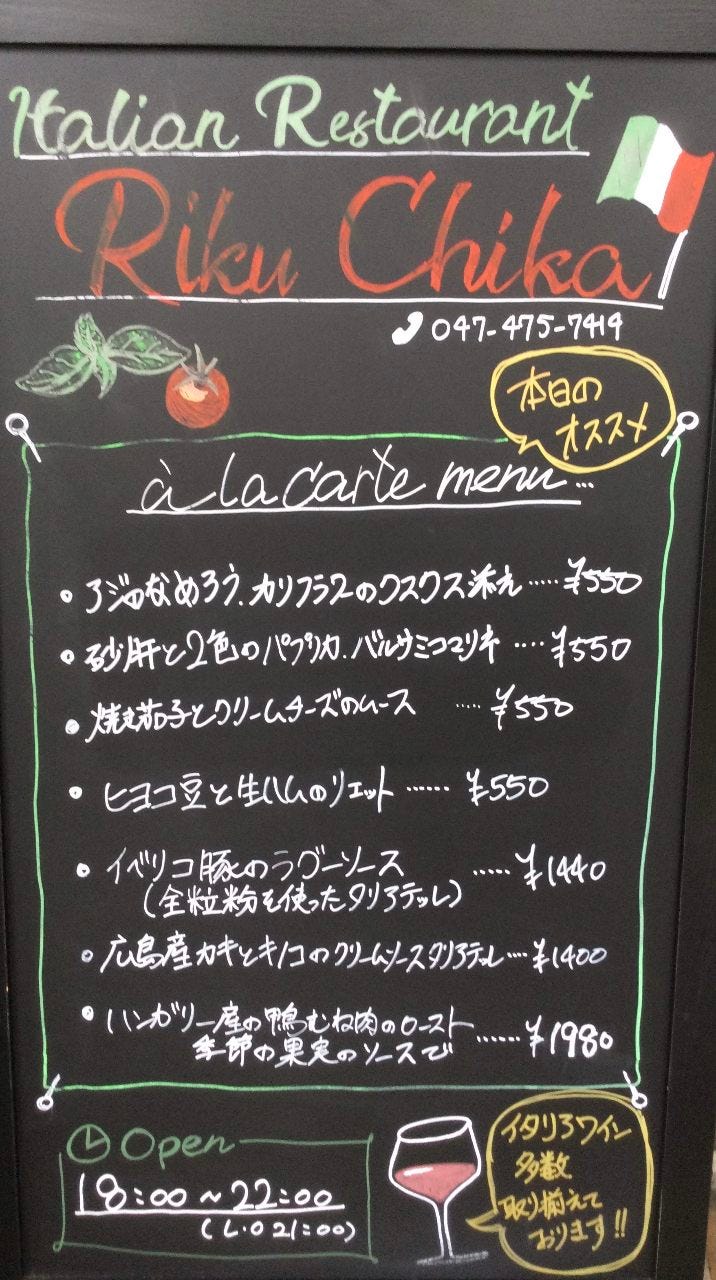 Italian Restaurant
Riku Chika
047-475-7419
本日の
オススメ
à la carte menu...
・アジのなめろう.カリフラワーのクスクス添え‥‥¥550
・砂肝と2色のパプリカ.バルサミコマリネ‥‥¥550
・焼き茄子とクリームチーズのムース ‥‥¥550
・ヒヨコ豆と生ハムのリエット‥‥‥¥550
・イベリコ豚のラグーソース ‥‥‥¥1440
(全粒粉を使ったタリアテッレ)
・広島産カキとキノコのクリームソースタリアテッレ‥‥¥1400
・ハンガリー産の鴨むね肉のロースト
季節の果実のソースで ‥‥‥¥1980
Open
18:00~22:00
(L.O 21:00)
イタリアワイン
多数
取り揃えて
おります!!